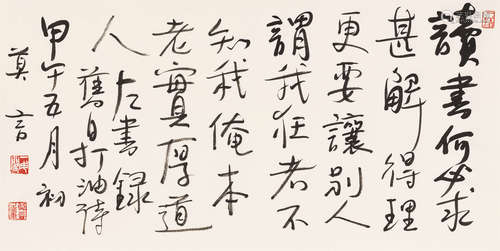 讀書何必求
甚解得理
更要讓別人
謂我狂者不
知我俺本
老實厚道
人左書錄
舊日打油詩
甲午五月初
莫言